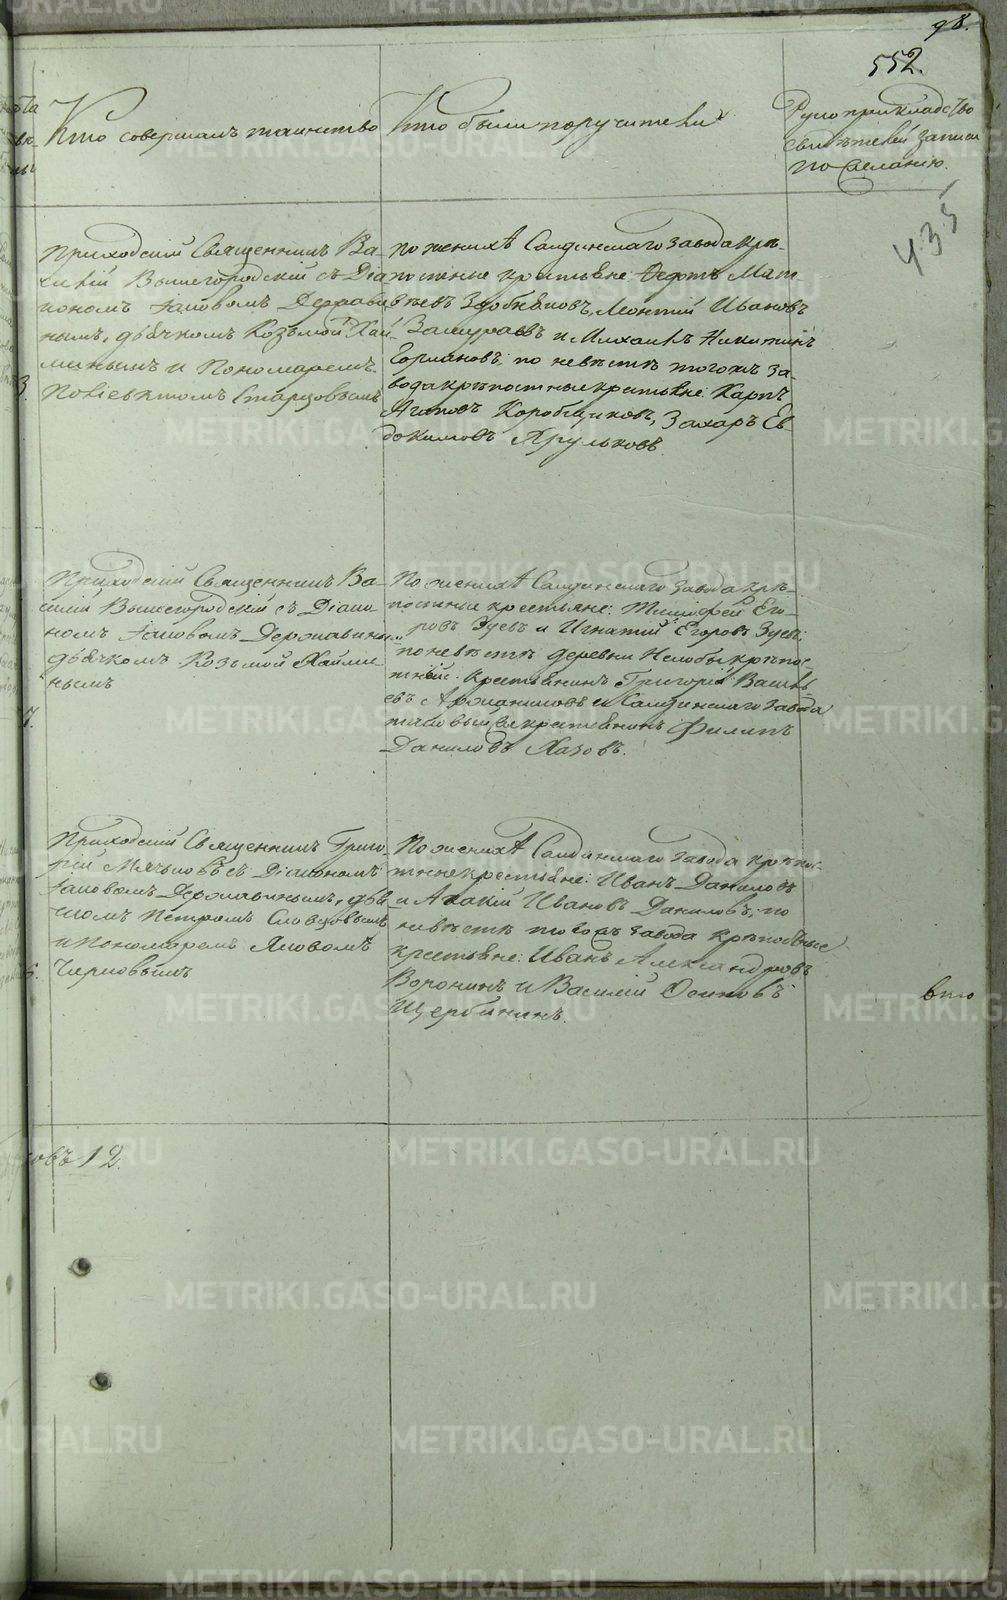 98.
552.
435
Кто совершалъ таинство
Кто были поручители
Рукоприкладство
свидѣтелей записи
по желанію.
Приходскій Священникъ Ва-
силій Вышегородскій съ Діа-
кономъ Іаковомъ Держави-
нымъ, дьячкомъ Козьмой Хай-
минымъ и Пономаремъ
Старцовымъ
По женихѣ Салдинскаго завода крѣ-
постные крестьяне: Федотъ Мат-
вѣевъ Здобняковъ, Леонтій Ивановъ
Замураевъ и Михаилъ Никитинъ
по невѣстѣ тогожъ за-
вода крѣпостные крестьяне: Карпъ
Агаповъ Коробщиковъ, Захаръ Ев-
докимовъ Хрульковъ.
Приходскій Священникъ Ва-
силій Вышегородскій съ Діако-
номъ Іаковомъ Державинымъ
дьячкомъ Козьмой Хайми-
нымъ
По женихѣ Салдинскаго завода крѣ-
постные крестьяне: Тимофей Его-
ровъ Зуевъ и Игнатій Егоровъ Зуевъ
по невѣстѣ деревни Нелобы крѣпос-
тный крестьянинъ Григорій Василь-
евъ и Салдинскаго завода
таковый же крестьянинъ Филипъ
Даниловъ Хазовъ.
Приходскій Священникъ Григо-
рій Мячковъ съ Діакономъ
Іаковомъ Державинымъ, дья-
чкомъ Петромъ Словцовымъ
и Пономаремъ Яковомъ
Черновымъ
По женихѣ Салдинскаго завода крѣпос-
тные крестьяне: Иванъ Даниловъ
и Акакій Ивановъ Даниловъ; по
невѣстѣ тогожъ завода крѣпостные
крестьяне: Иванъ Александровъ
Воронинъ и Василій Осиповъ
Щербининъ.
овъ 12.
METRIKI.GASO-URAL.RU